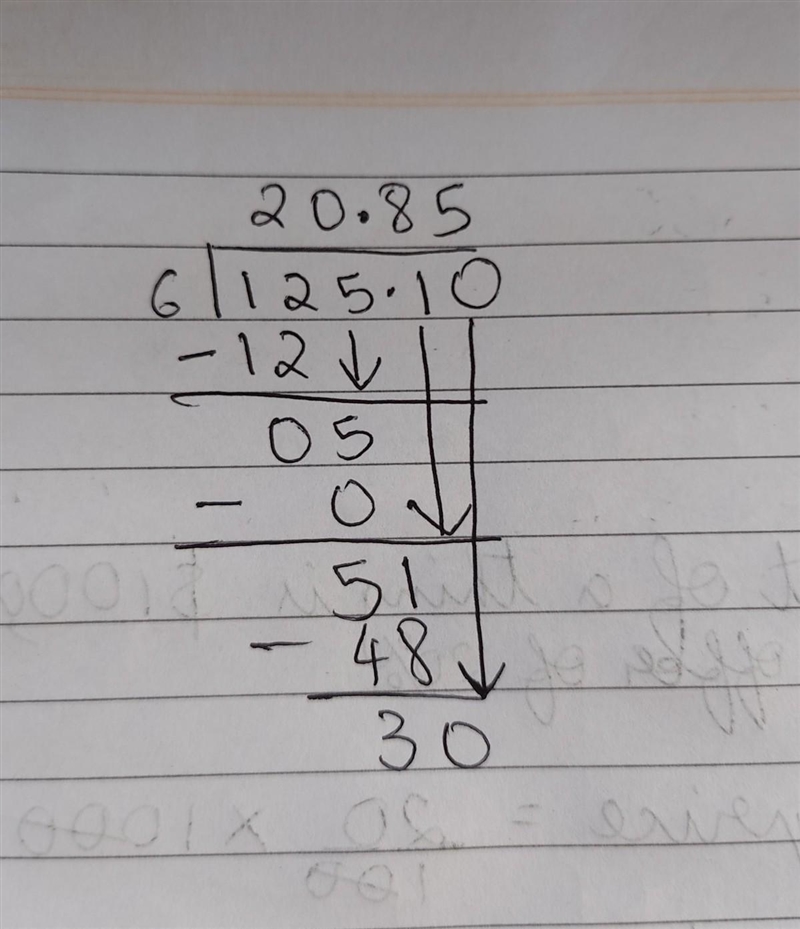 20.85
6 125.10
-12
05
- 0
51
- 48
30